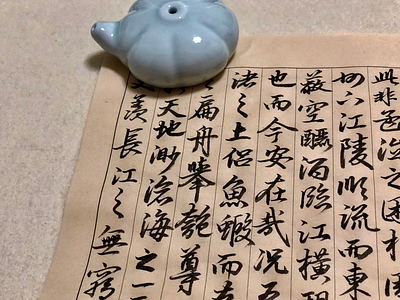 此非孟德之困於周
州下江陵順流而東
蔽空釃酒臨江橫
也而今安在哉況吾
渚之上侶魚鰕而友
扁舟舉匏尊
天地渺滄海之一
羨長江之無窮